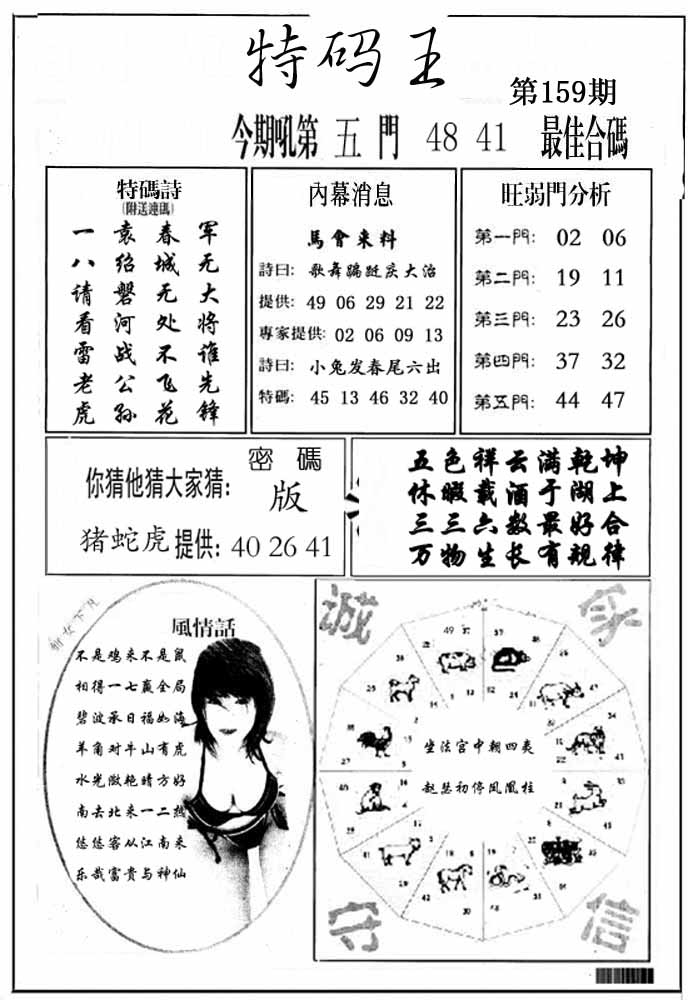 特码王
第159期
今期吼第 五 門 48 41 最佳合碼
特碼詩
(附送連碼)
一袁春军
八绍城无
请磐无大
看河处将
雷战不谁
老公飞先
虎孙花锋
內幕消息
馬會来料
詩曰: 歌舞蹁跹庆大治
提供: 49 06 29 21 22
專家提供: 02 06 09 13
詩曰: 小兔发春尾六出
特碼: 45 13 46 32 40
旺弱門分析
第一門: 02 06
第二門: 19 11
第三門: 23 26
第四門: 37 32
第五門: 44 47
密碼
你猜他猜大家猜: 版
猪蛇虎 提供: 40 26 41
五色祥云满乾坤
休暇载酒于湖上
三三六数最好合
万物生长有规律
風情話
不是鸡来不是鼠
相得一七赢全局
碧波承日福如海
羊角对牛山有虎
水光潋艳晴方好
南去北来一二热
悠悠客从江南来
乐哉富贵与神仙
诚
守
信
坐法宫中朝四夷
赵瑟初停凤凰柱
49 37